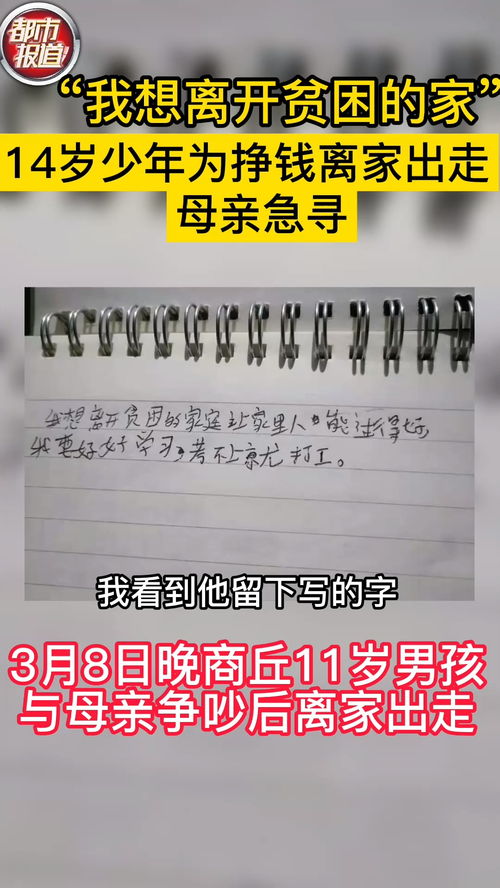 都市
报道
“我想离开贫困的家”
14岁少年为挣钱离家出走
母亲急寻
我想离开贫困的家庭让家里人能过得好
我要好好学习考不上就打工。
我看到他留下写的字
3月8日晚商丘11岁男孩
与母亲争吵后离家出走